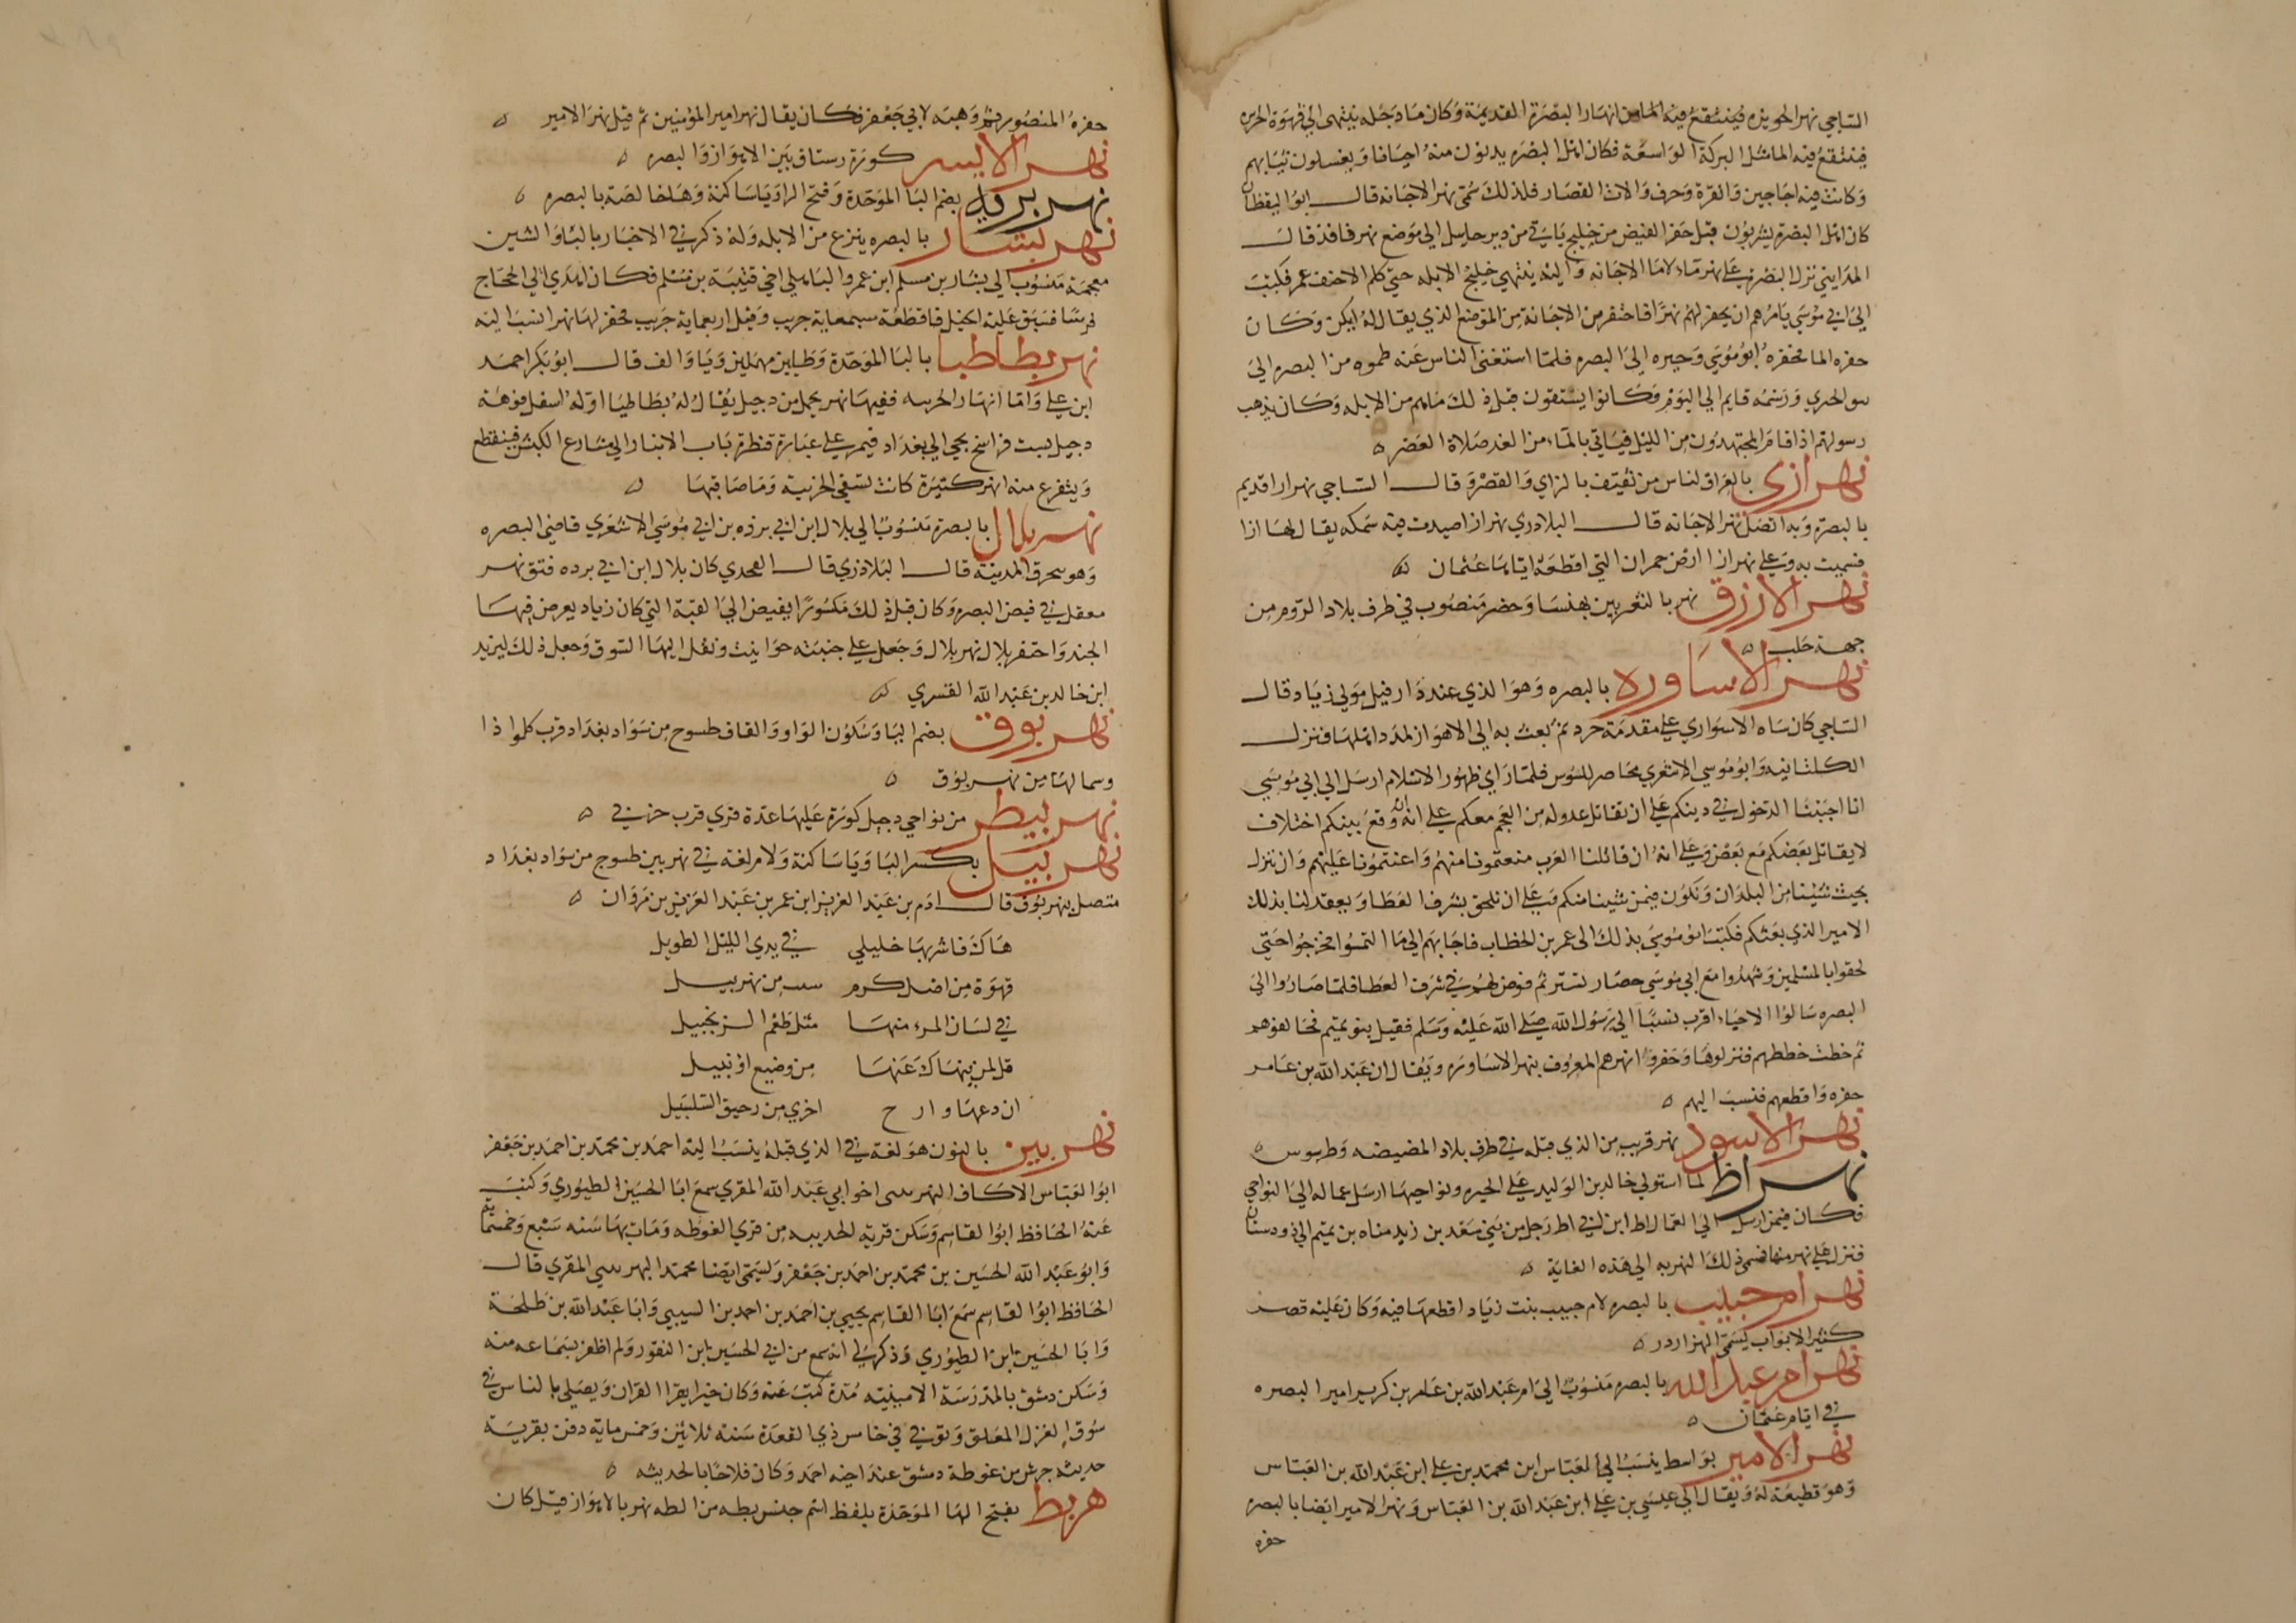 الساجي نهر الحويزه فينتقع فيه الما من انهار البصرة القديمة وكان ما دجله ينتهى الي فهوة الحره
فينتقع فيه الما مثل البركة الواسعة فكان اهل البصره يدنون منه احيانا ويغسلون ثيابهم
وكانت فيه اجاجين والقرة وحرف والات القصار فلذلك سمى نهر الاجانه قال ابو اليقظان
كان اهل البصره يشربون قبل حفر الفيض من خليج ياتى من دير الى موضع نهر نافذ قال
المدايني نزل البصره على نهر ماء لا ما الاجانه واليه ينتهى خليج الابله حتى كلم الاحنف عمر فكتب
الى ابي موسى يامرهم ان يحفر لهم نهرا فاحتفر من الاجانة من الموضع الذي يقال له ابكن وكان
حفره الما فحفره ابو موسى وحيره الى البصره فلما استغنى الناس عنه طموه من البصره الى
الحري ورسمه قايم الى اليوم وكانوا يستقون قبل ذلك ماهم من الابله وكان يذهب
رسولهم اذا قام المجتهدون من الليل فياتي بالماء من الغد صلاة العصر ه
نهر ازى بالعراق لناس من ثقيف بالزاي والقصر وقال الساجي نهر ارا قديم
بالبصره وبه اتصل نهر الاجانه قال البلاذري نهر ازا صيدت فيه سمكه يقال لها ازا
فسميت به وعلى نهر ازا ارض حمران التى اقطعه اياها عثمان
نهر الازرق نهر بالثغر بين بهنسا وحضر منصوب في طرف بلاد الروم من
جهة حلب ه
نهر الاساوره بالبصره وهو الذي عند دار فيل مولى زياد قال
الساجي كان سياه الاسواري على مقدمة يزدجرد ثم بعث به الى الاهواز لمدد اهلها فنزل
الكلتانيه وابو موسي الاشعري محاصر للسوس فلما راي ظهور الاسلام ارسل الي ابي موسي
انا احببنا الدخول في دينكم على ان نقاتل عدوكم من العجم معكم على انه ان وقع بينكم اختلاف
لا يقاتل بعضكم مع بعض وعلى انه ان قاتلنا العرب منعتمونا منهم واعنتمونا عليهم وان ننزل
بحيث شئنا من البلدان ونكون فيمن شينا منكم وعلى ان نلحق بشرف العطا ويعقد لنا بذلك
الامير الذي بعثكم فكتب ابو موسى بذلك الى عمر بن الخطاب فاجابهم الى ما التمسوا فخرجوا حتى
لحقوا بالمسلمين وشهدوا مع ابي موسى حصار تستر ثم فرض لهم في شرف العطا فلما صاروا الى
البصره سالوا الاحياء اقرب نسبا الى رسول الله صلى الله عليه وسلم فقيل بنو تميم فحالفوهم
ثم خطت خططهم فنزلوها وحفروا نهرهم المعروف بنهر الاساوره ويقال ان عبد الله بن عامر
حفره واقطعهم فنسب اليهم ه
نهر الاسود نهر قريب من الذي قبله في طرف بلاد المصيصه وطرسوس ه
نهر اط لما استولى خالد بن الوليد على الحيره ونواحيها ارسل عماله الى النواحي
فكان فيمن ارسل الى العمال اط ابن ابي اط رجل من بني سعد بن زيد مناه بن تميم الى دورستان
فنزل على نهر منها فسمى ذلك النهر به الى هذه الغاية ه
نهر ام حبيب بالبصره لام حبيب بنت زياد اقطعها فيه وكان عليه قصر
كثير الابواب يسمى الهزاردر ه
نهر ام عبد الله بالبصره منسوب الى ام عبد الله بن عامر بن كريز امير البصره
في ايام عثمان ه
نهر الامير بواسط ينسب الي العباس ابن محمد بن علي ابن عبد الله بن العباس
وهو قطيعة له ويقال الي عيسي بن علي ابن عبد الله بن العباس ونهر الامير ايضا بالبصره
حفره
حفره المنصور ثم وهبه لابي جعفر فكان يقال نهر امير المؤمنين ثم قيل نهر الامير ه
نهر الايسر كورة رستاق بين الاهواز والبصره ه
نهر بريه بضم البا الموحدة وفتح الرا ويا ساكنة وها خالصة بالبصره ه
نهر بشار بالبصره ينزع من الابله وله ذكر في الاخبار بالبا والشين
معجمة منسوب الي بشار بن مسلم ابن عمرو الباهلي اخي قتيبة بن مسلم فكان اهدي الي الحجاج
فرسا فسبق عليه الخيل فاقطعه سبعماية جريب وقيل اربعماية جريب فحفر لها نهرا نسب اليه
نهر بطاطيا بالبا الموحدة وطاءين مهملين ويا والف قال ابو بكر احمد
ابن علي واما انهار الحربيه ففيها نهر يحمل من دجيل يقال له بطاطيا اوله اسفل فوهة
دجيل بست فراسخ يجي الي بغداد فيمر علي عبارة قنطرة باب الانبار الي شارع الكبش فينقطع
ويتفرع منه انهر كثيرة كانت تسقي الحربية وما صاقبها ه
نهر بلال بالبصرة منسوب الي بلال ابن ابي برده بن ابي موسي الاشعري قاضي البصره
وهو يخرق المدينة قال البلاذري قال القحدي كان بلال ابن ابي برده فتق نهر
معقل في فيض البصره وكان قبل ذلك مكسورا يفيض الي القبة التي كان زياد يعرض فيها
الجند واحتفر بلال نهر بلال وجعل علي جنبته حوانيت ونقل اليها السوق وجعل ذلك ليزيد
ابن خالد بن عبد الله القسري ه
نهر بوق بضم البا وسكون الواو والقاف طسوج من سواد بغداد قرب كلواذا
وسمالها من نهر بوق ه
نهر بيطر من نواحي دجيل كورة عليها عدة قري قرب حربي ه
نهر بيل بكسر البا ويا ساكنة ولام لغة في نهر بين طسوج من سواد بغداد
متصل بنهر بوق قال ادم بن عبد العزيز ابن عمر بن عبد العزيز بن مروان ه
هاك فاشربها خليلي في مدي الليل الطويل
قهوة من اصل كرم من نهر بيل
في لسان المرء منها مثل طعم الزنجبيل
قل لمن ينهاك عنها من وضيع او نبيل
ان دعها وارح اخري من رحيق السلسبيل
نهر بين بالنون هو لغة في الذي قبله ينسب اليه احمد بن محمد بن احمد بن جعفر
ابو العباس الاكاف النهربيني اخو ابي عبد الله المقري سمع ابا الحسين الطيوري وكتب
عنه الحافظ ابو القاسم وسكن قرية الحديثه من قري الغوطه ومات بها سنه سبع وخمسماية
وابو عبد الله الحسين بن محمد بن احمد بن جعفر ويسمى ايضا محمدا النهربيني المقري قال
الحافظ ابو القاسم سمع ابا القاسم يحيي بن احمد بن احمد بن السيبي وابا عبد الله بن طلحة
وابا الحسين ابن الطيوري وذكر لي انه سمع من ابي الحسين ابن النقور ولم اظفر بسماعه منه
وسكن دمشق بالمدرسة الامينيه مدة كتب عنه وكان خيرا يقرا القران ويصلي بالناس في
سوق الغزل المعلق وتوفي في خامس ذي القعدة سنة ثلاثين وخمس ماية دفن بقرية
حديثه جرش من غوطة دمشق عند اخيه احمد وكان فلاحا بالحديثه ه
هربط بفتح البا الموحدة بلفظ اسم جنس بطه من البطه نهر بالاهواز قيل كان